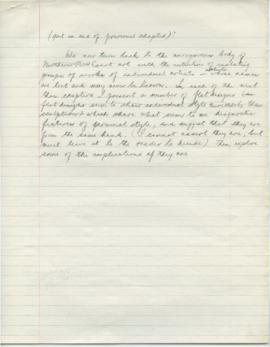 (put in end of previous chapter)?
We now turn back to the anonymous body of
Northern NW Coast art with the intention of isolating
groups of works of individual artists - whose names
Style
we lost and may never be known. In each of the next
three chapters I present a number of flat designs (as
flat designs seem to show individual style more than
sculpture) which share what seem to me diagnostic
features of personal style, and suggest that they are
from the same hand. (I cannot prove they are, but
must leave it to the reader to decide) Then explore
some of the implications if they are